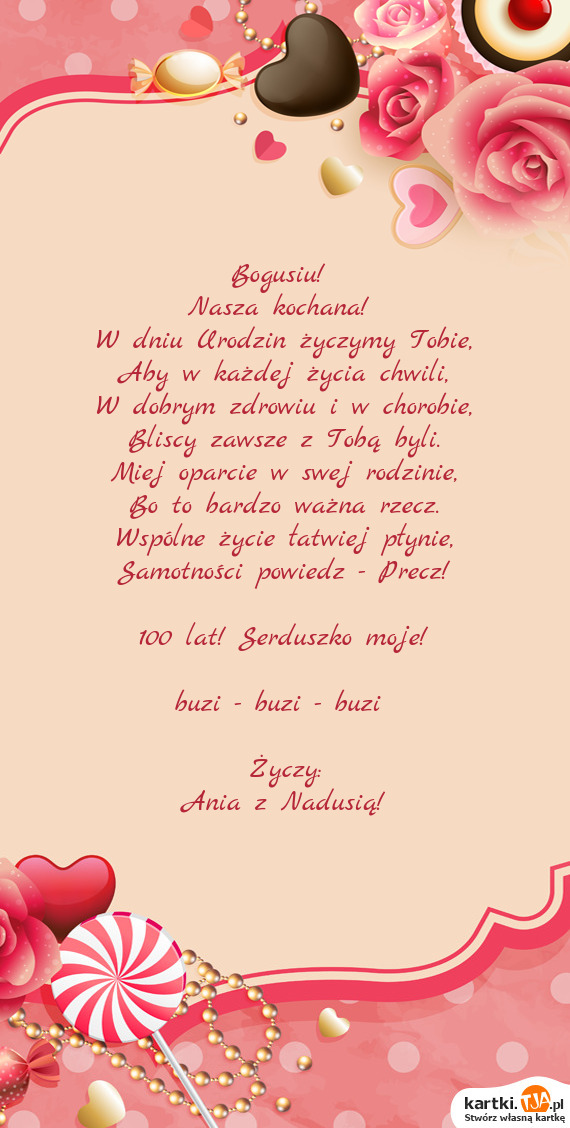 Bogusiu!
Nasza kochana!
W dniu Urodzin życzymy Tobie,
Aby w każdej życia chwili,
W dobrym zdrowiu i w chorobie,
Bliscy zawsze z Tobą byli.
Miej oparcie w swej rodzinie,
Bo to bardzo ważna rzecz.
Wspólne życie łatwiej płynie,
Samotności powiedz - Precz!
100 lat! Serduszko moje!
buzi - buzi - buzi
Życzy:
Ania z Nadusią!
kartki.TJA.pl
Stwórz własną kartkę